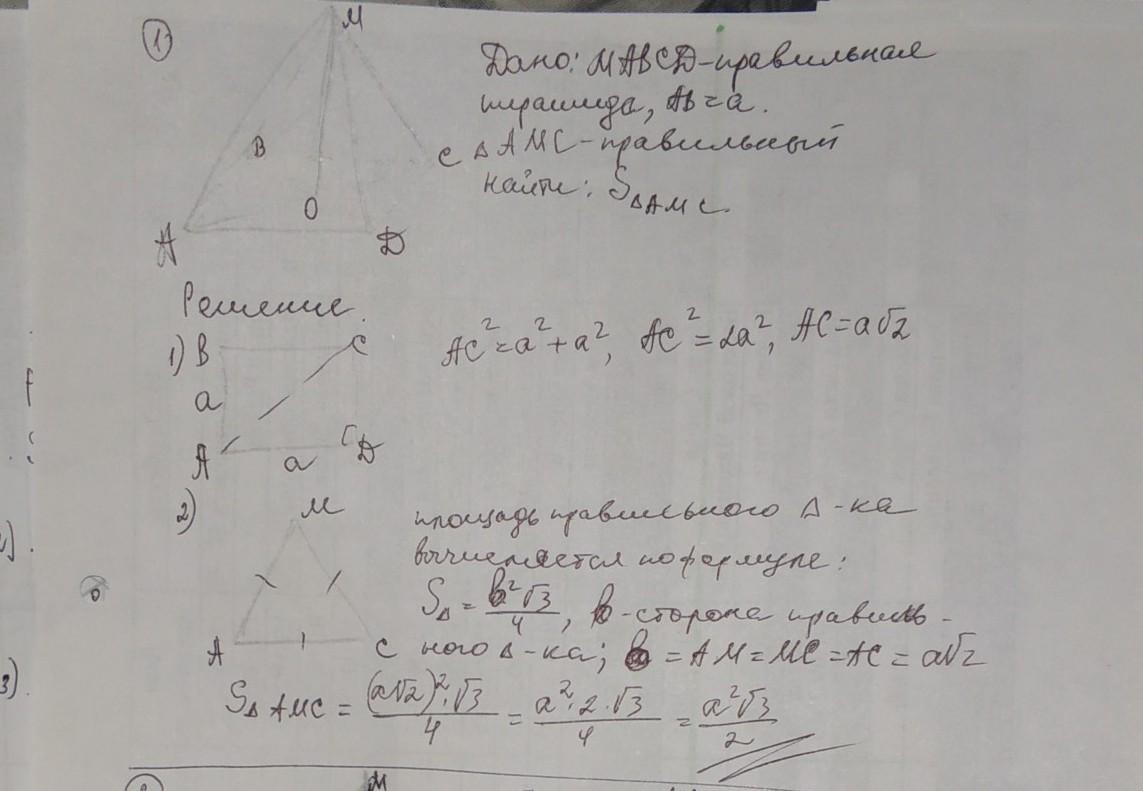 1)
M
Дано: MABCD-правильная
пирамида, AB=a.
B
C
△AMC-правильный
найти: S△AMC.
O
A
D
Решение.
1) B
C
AC²=a²+a², AC²=2a², AC=a√2
a
A
a
D
2)
M
площадь правильного △-ка
вычисляется по формуле:
S△=b²√3/4, b-сторона правиль-
A
C
ного △-ка; b=AM=MC=AC=a√2
S△AMC=(a√2)²·√3/4=a²·2·√3/4=a²√3/2
M